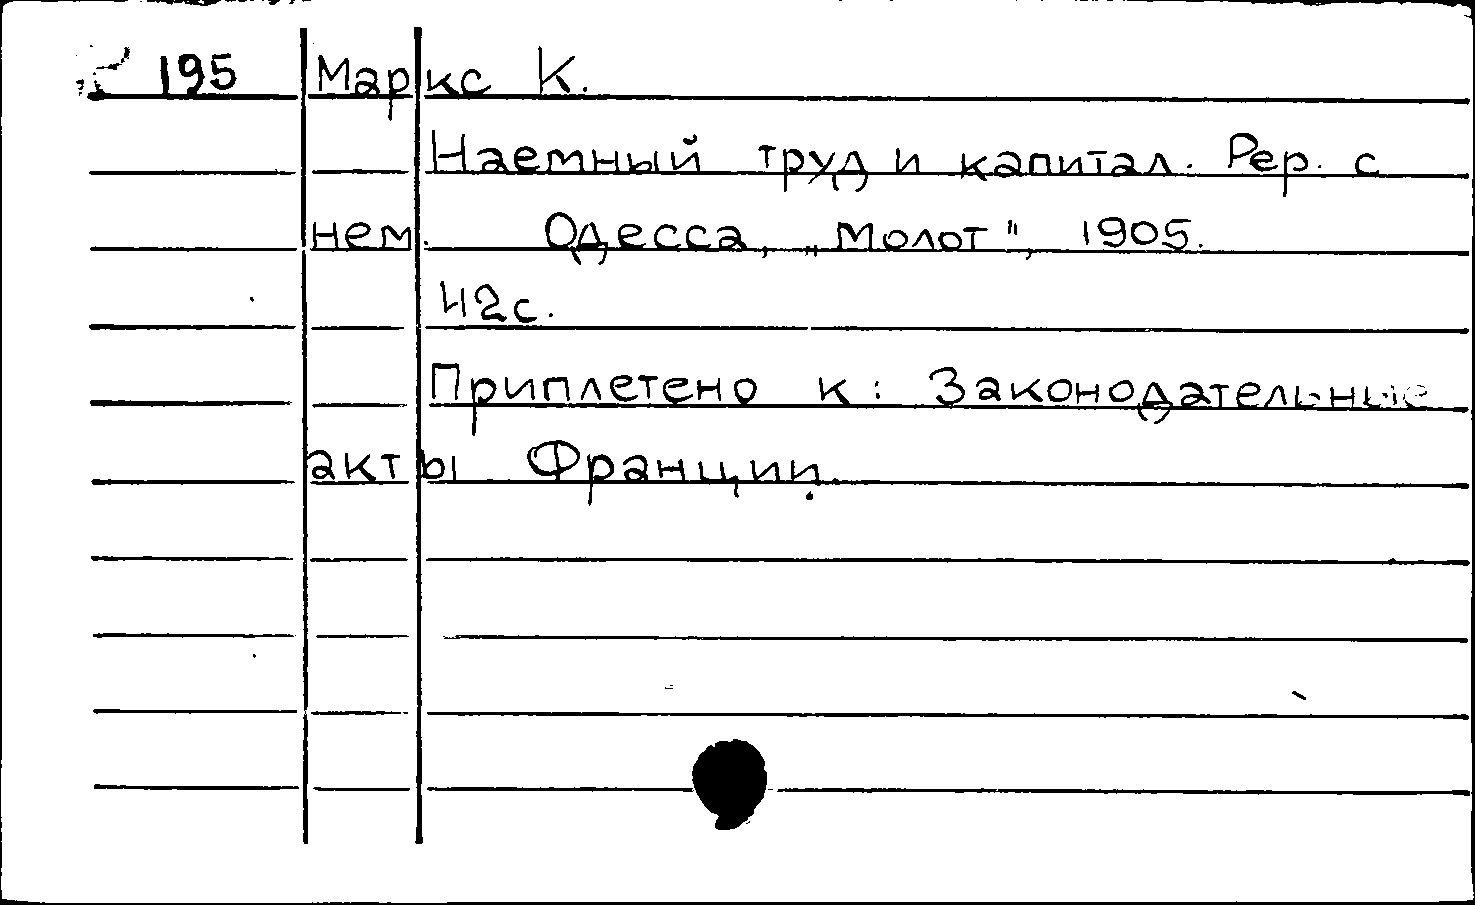 195 Маркс К.
Наемный труд и капитал. Рер. с
нем. Одесса, „Молот", 1905.
42с.
Приплетено к: Законодательные
акты Франции.